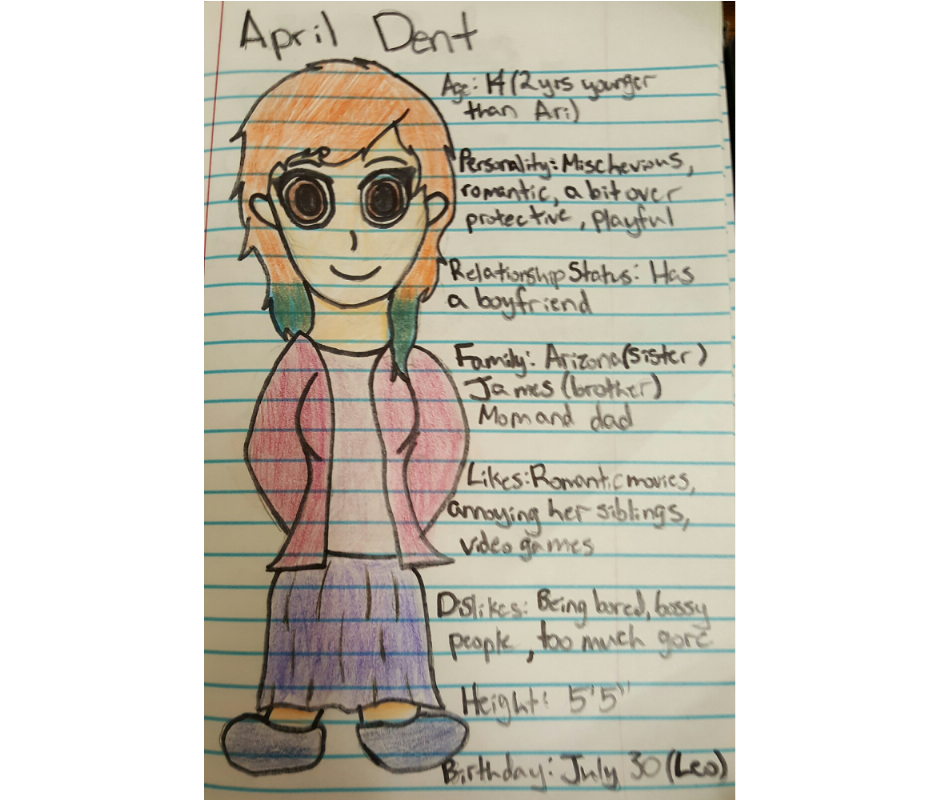 April Dent
Age: 14 (2 yrs younger
than Ari)
Personality: Mischevious,
romantic, a bit over
protective, playful
Relationship Status: Has
a boyfriend
Family: Arizona (sister)
James (brother)
Mom and dad
Likes: Romantic movies,
annoying her siblings,
video games
Dislikes: Being bored, bossy
people, too much gore
Height: 5'5"
Birthday: July 30 (Leo)